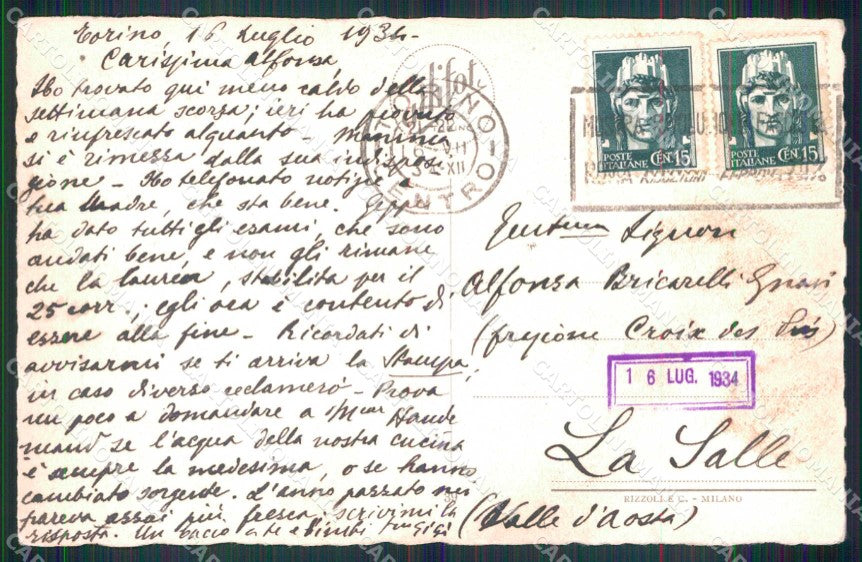 Torino 16 Luglio 1934
Carissima Alfonsa,
Ho trovato qui meno caldo della
settimana scorsa; ieri ha piovuto
e rinfrescato alquanto - Mammina
si è rimessa dalla sua indisposi
zione - Ho telefonato notizie a
tua Madre, che sta bene.
ha dato tutti gli esami, che sono
andati bene, e non gli rimane
che la laurea, stabilita per il
25 corr.; egli ora è contento di
essere alla fine - Ricordati di
avvisarmi se ti arriva la Stampa,
in caso diverso reclamerò - Prova
un poco a domandare a
se l'acqua della nostra cucina
è sempre la medesima, o se hanno
cambiato sorgente. L'anno passato mi
pareva assai più fresca; scrivimi la
risposta. Un bacio a te e bimbi tuo Gigi
TORINO
CENTRO
POSTE ITALIANE CEN. 15
POSTE ITALIANE CEN. 15
Signora
Alfonsa Bricarelli
(frazione Croix des
16 LUG. 1934
La Salle
RIZZOLI E C. - MILANO
(Valle d'Aosta)
CARTOLINOMANIA